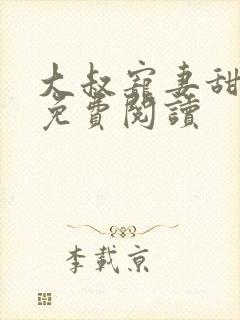 大叔寵妻甜
免費閱讀
李載京